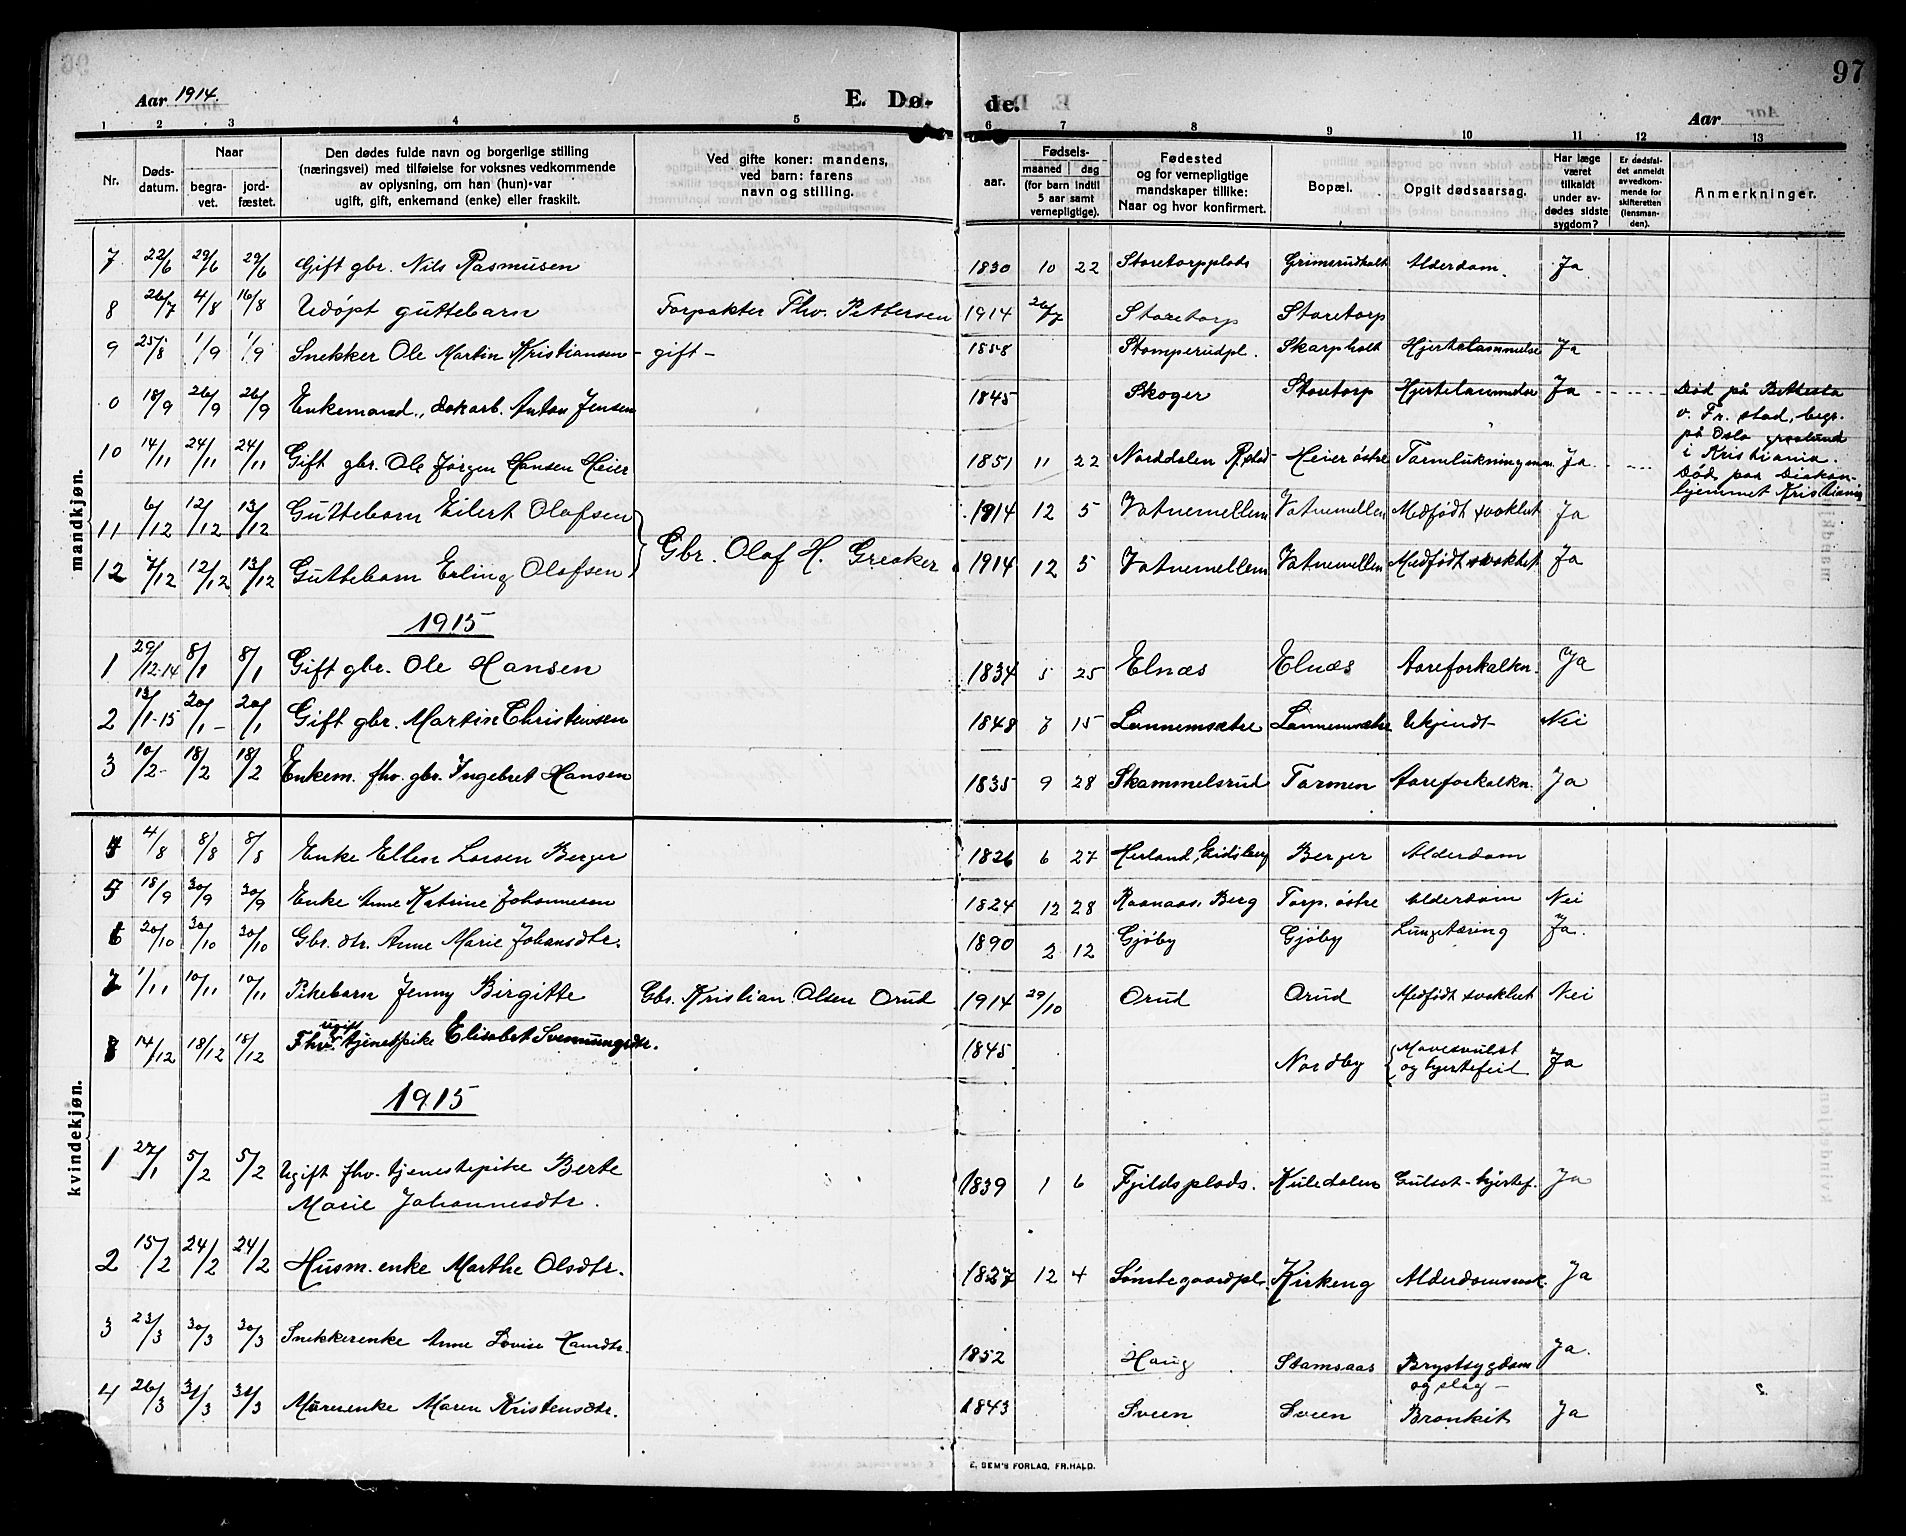 97
Aar 1914.
E. Dø- de.
Aar
1 2 3 4 5 6 7 8 9 10 11 12 13
Nr.
Døds-
datum.
Naar
begra-
vet.
jord-
fæstet.
Den dødes fulde navn og borgerlige stilling
(næringsvei) med tilføielse for voksnes vedkommende
av oplysning, om han (hun) var
ugift, gift, enkemand (enke) eller fraskilt.
Ved gifte koner: mandens,
ved barn: farens
navn og stilling.
aar.
Fødsels-
maaned dag
(for barn indtil
5 aar samt
vernepligtige).
Fødested
og for vernepligtige
mandskaper tillike:
Naar og hvor konfirmert.
Bopæl.
Opgit dødsaarsag.
Har læge
været
tilkaldt
under av-
dødes sidste
sygdom?
Er dødsfal-
det anmeldt
av vedkom-
mende for
skifteretten
(lensman-
den).
Anmerkninger.
mandkjøn.
7 22/6 29/6 29/6 Gift gbr. Nils Rasmusen 1830 10 22 Storetorpplads Grimsrudholt Alderdom. Ja
8 26/7 4/8 16/8 Udøpt guttebarn Forpakter Thv. Pettersen 1914 26/7 Storetorp Storetorp
9 25/8 1/9 1/9 Snekker Ole Martin Kristiansen - gift - 1858 Stomperudpl. Skarpholt Hjertelammelse Ja
0 18/9 26/9 26/9 Enkemand, dokarb. Anton Jensen 1845 Skoger Storetorp Hjertelammelse Ja Død på Bethesta
v. Fr.stad, begr.
på Oslo gravlund
i Kristiania.
10 14/11 24/11 24/11 Gift gbr. Ole Jørgen Hansen Heier 1851 11 22 Norddalen R.plad Heier østre Tarmlukning Ja Død paa Diakon-
hjemmet Kristiania
11 6/12 12/12 13/12 Guttebarn Eilert Olafsen 1914 12 5 Vatnemellem Vatnemellem Medfødt svakhet Ja
Gbr. Olaf H. Greaker
12 7/12 12/12 13/12 Guttebarn Erling Olafsen 1914 12 5 Vatnemellem Vatnemellem Medfødt svakhet Ja
1915
1 29/12-14 8/1 8/1 Gift gbr. Ole Hansen 1834 5 25 Elnæs Elnæs Aareforkalkn. Ja
2 13/1-15 20/1 20/1 Gift gbr. Martin Christensen 1848 7 15 Lannemsætre Lannemsætre Ukjendt Nei
3 10/2 18/2 18/2 Enkem. fhv. gbr. Ingebret Hansen 1835 9 28 Skammelsrud Tormen Aareforkalkn. Ja
kvindekjøn.
4 4/8 8/8 8/8 Enke Ellen Larsen Berger 1826 6 27 Herland, Eidsberg Berger Alderdom
5 18/9 30/9 30/9 Enke Anne Katrine Johannesen 1824 12 28 Raanaas, Berg Torp, østre Alderdom Nei
6 20/10 30/10 30/10 Gbr. dtr. Anne Marie Johansdtr. 1890 2 12 Gjøby Gjøby Lungetæring Ja.
7 1/11 10/11 10/11 Pikebarn Jenny Birgitte Gbr. Kristian Olsen Orud 1914 29/10 Orud Orud Medfødt svakhet Nei
8 14/12 18/12 18/12 Fhv. ugift tjenestpike Elisabet Svennungsdtr. 1845 Nordby Mavesvulst
og hjertefeil Ja
1915
1 27/1 5/2 5/2 Ugift fhv. tjenestepike Berte
Marie Johannesdtr. 1839 1 6 Fjeldsplads. Kuledalen Gulsot - hjertef. Ja
2 15/2 24/2 24/2 Husm. enke Marthe Olsdtr. 1827 12 4 Sønstegaardpl. Kirkeng Alderdomssvak. Ja
3 23/3 30/3 30/3 Snekkerenke Anne Lovise Hansdtr. 1852 Haug Stamsaas Brystsygdom
og slag - Ja.
4 26/3 31/3 31/3 Murerenke Maren Kristensdtr. 1843 Sveen Sveen Bronkit Ja
E. SEM'S FORLAG, FR.HALD.